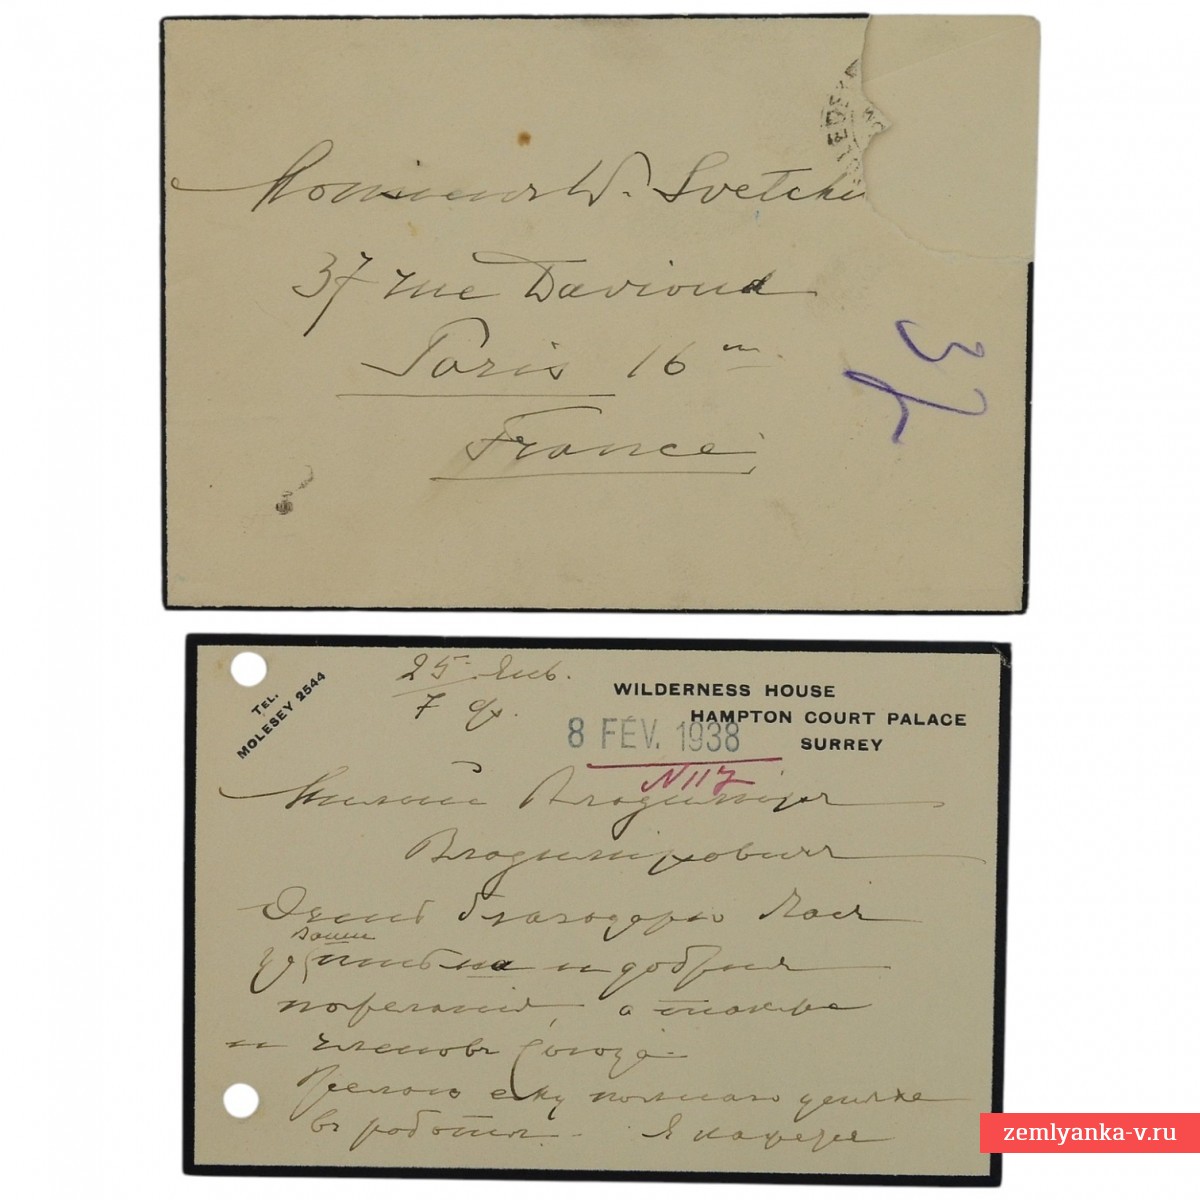 Monsieur W. Svetchi
37 rue Davioud
Paris 16 m
France
37
TEL.
MOLESEY 2544
25 Янв.
7 фр.
WILDERNESS HOUSE
HAMPTON COURT PALACE
SURREY
8 FÉV. 1938
N 117
Милый Владимір
Владиміровичъ
благодарю Васъ
Ваши
и добрыя
пожеланія, а также
и членовъ Союза
Желаю ему полнаго успѣха
въ работѣ. Я также
zemlyanka-v.ru